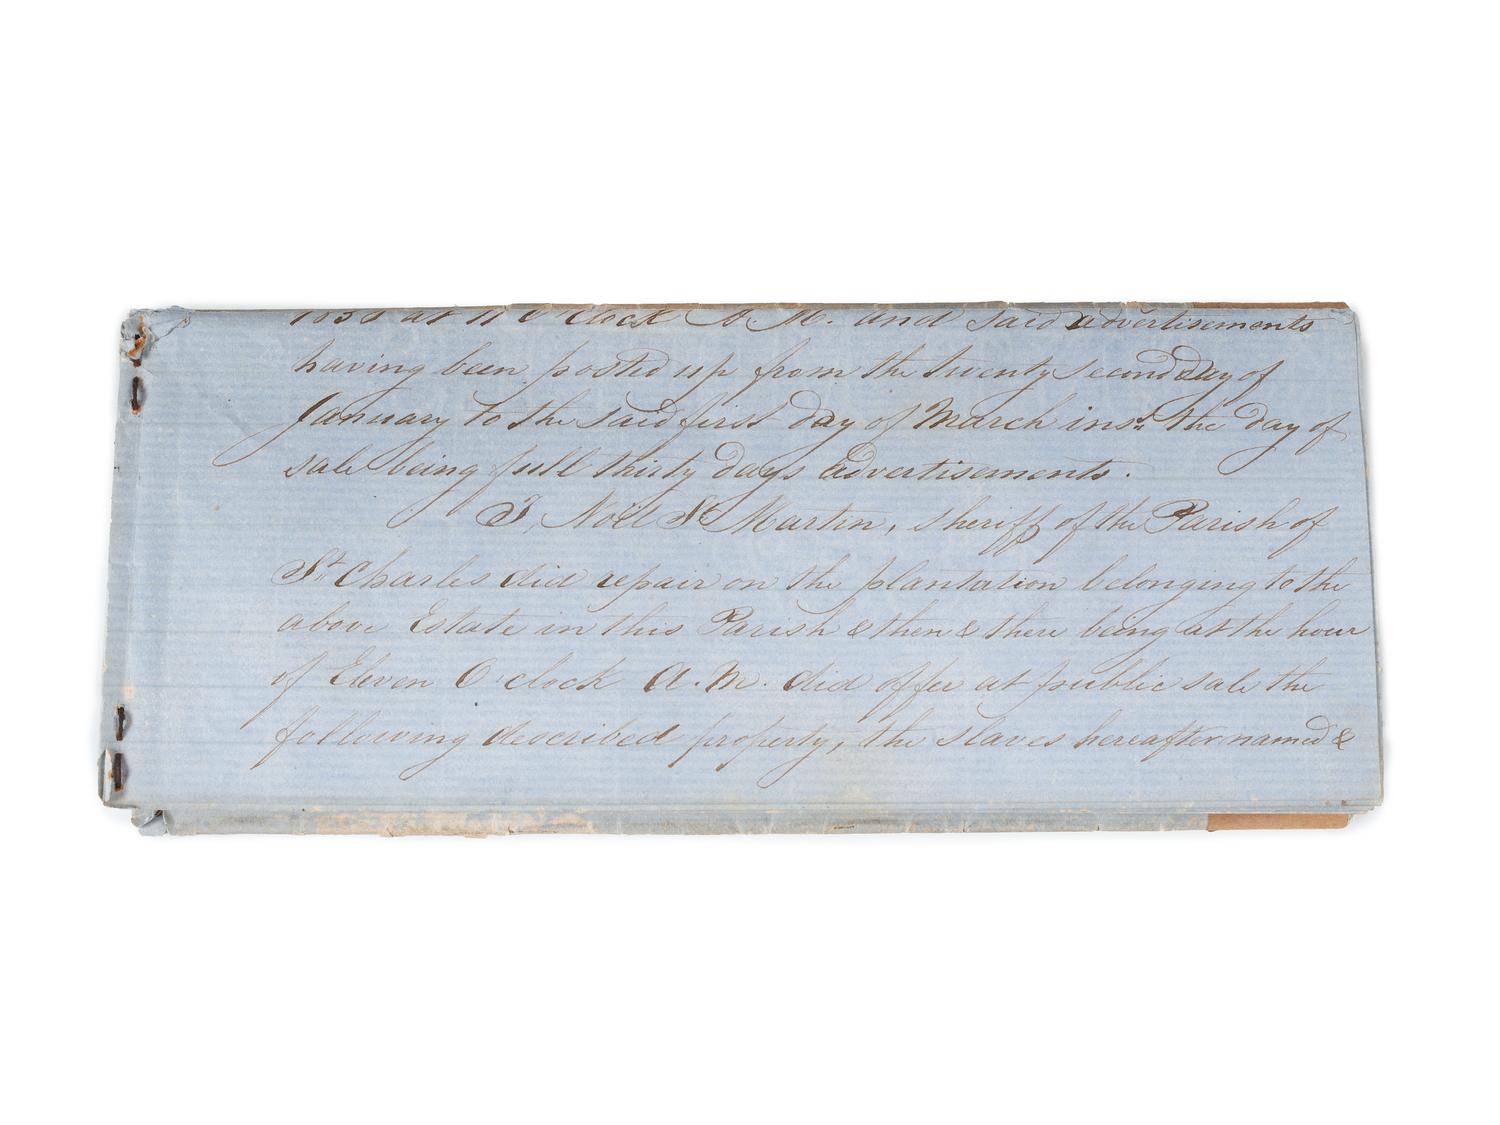 at 11 O'Clock A. M. and said advertisements
having been posted up from the twenty second day of
January to the said first day of March inst. the day of
sale being full thirty days advertisements.
I, Noël St Martin, sheriff of the Parish of
St Charles did repair on the plantation belonging to the
above Estate in this Parish & then & there being at the hour
of Eleven O'clock A. M. did offer at public sale the
following described property, the slaves hereafter named &